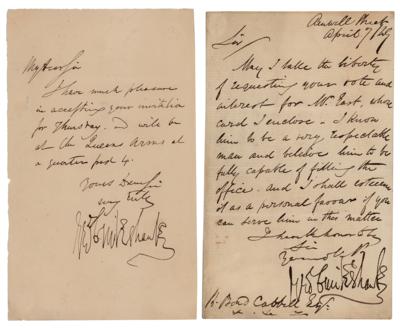 My dear Sir
I have much pleasure
in accepting your invitation
for Thursday. I will be
at the Queens Arms at
a quarter past 4.
Yours Dear Sir
very truly
Geo Cruikshank
April 7/49
Sir
May I take the liberty
of requesting your vote and
interest for Mr East, whose
card I enclose. I know
him to be a very respectable
man and believe him to be
fully capable of filling the
office. and I shall esteem
it as a personal favour if you
can serve him in this matter
I have the honor to be
Sir
Geo Cruikshank
B. Bond Cabbell Esqr.